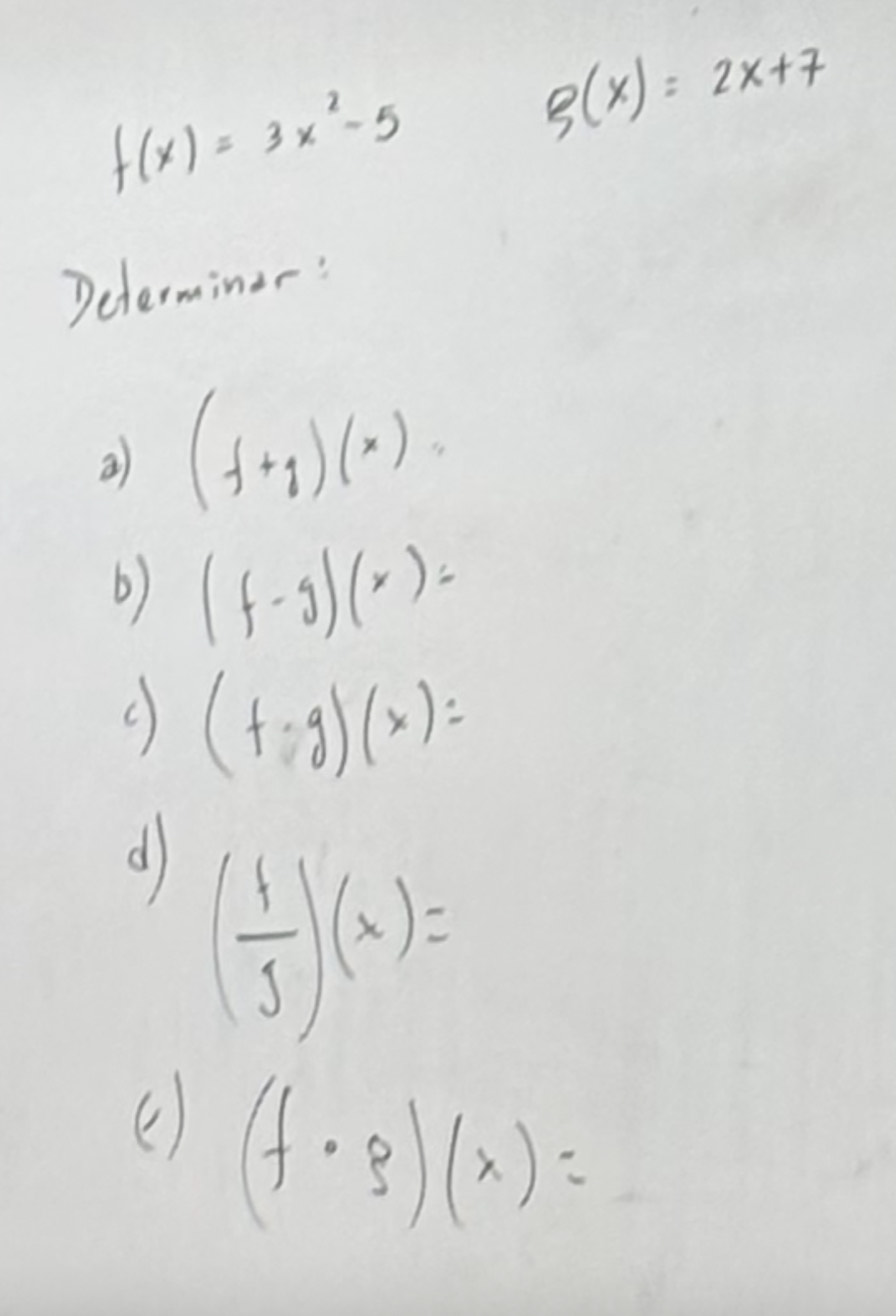 f(x) = 3x² - 5 g(x) = 2x+7
Determinar:
a) (f+g)(x) =
b) (f-g)(x) =
c) (f·g)(x) =
d) (f/g)(x) =
e) (f • g)(x) =